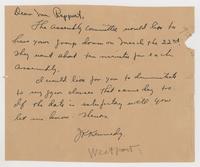 Dear Van Rippert,
The Assembly Committee would like to
have your group down on March the 22nd
They want about ten minutes for each
Assembly.
I would like for you to demonstrate
to my gym classes that same day too
If the date is satisfactory will you
let me know.
J Kennedy
Westport.